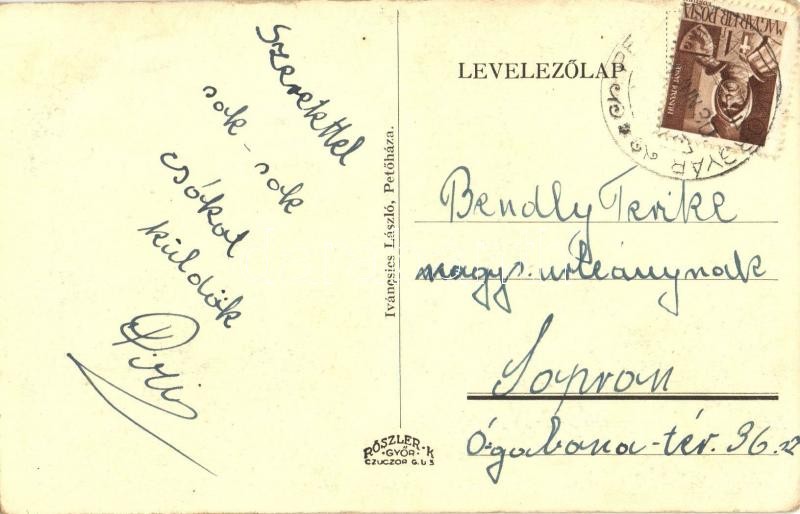 Szeretettel
sok-sok
csókot
küldök
LEVELEZŐLAP
MAGYAR KIR. POSTA
Iváncsics László, Petőháza.
Bendly Terike
nagys. urleánynak
Sopron
Ógabona-tér. 36.
RÓSZLER-K
GYŐR
CZUCZOR G.U 3